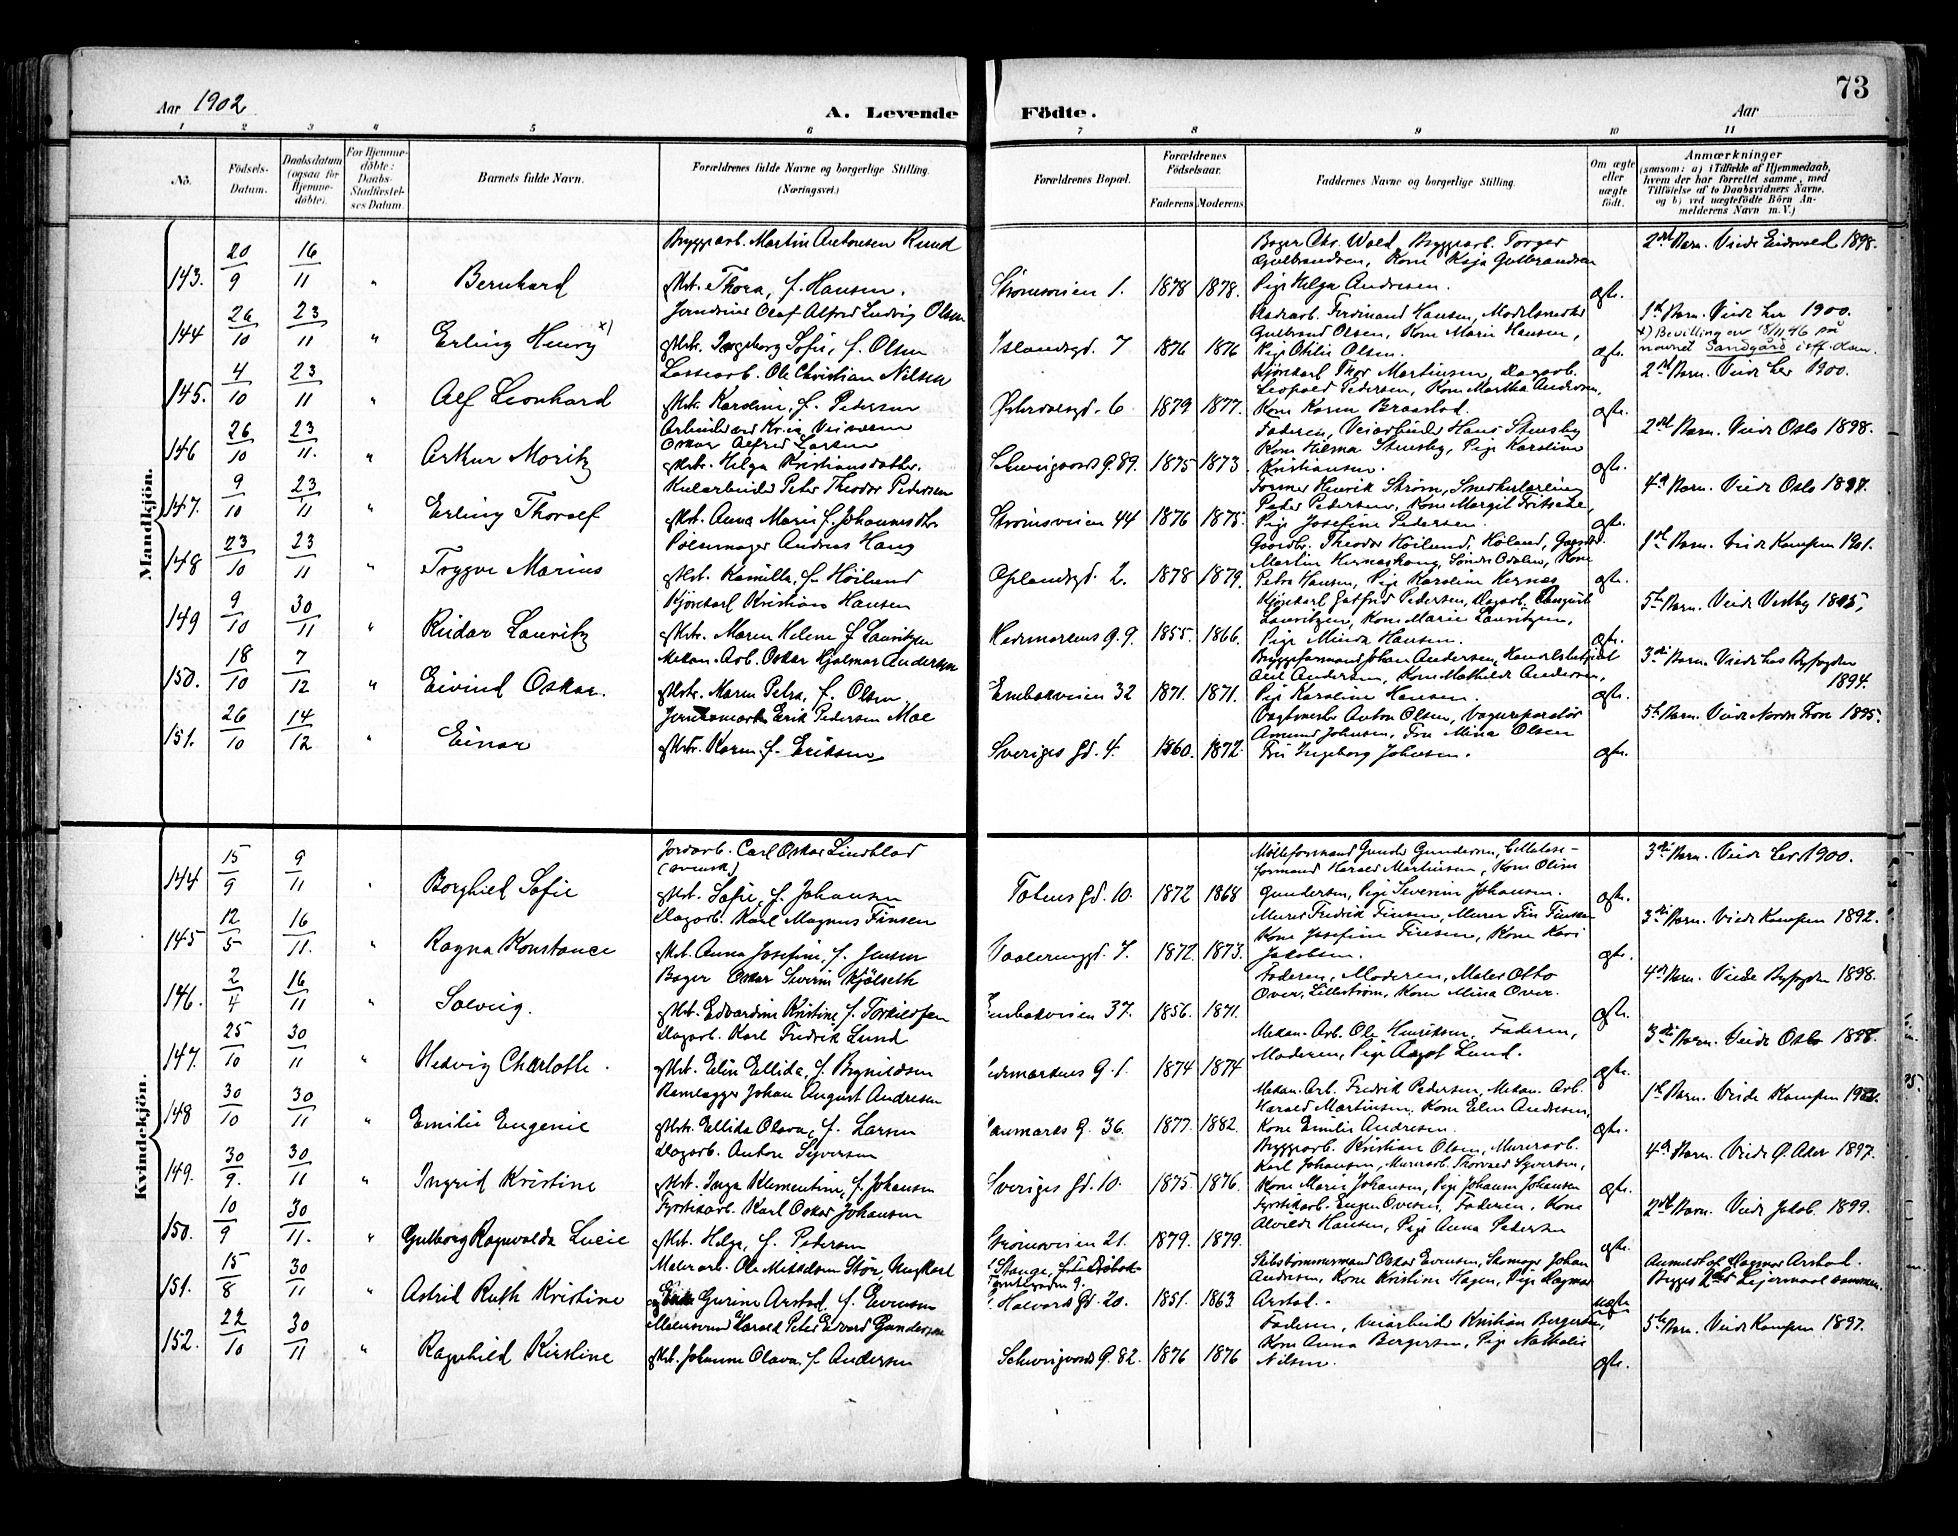 73
Aar 1902
A. Levende
Födte.
Aar
1 2 3 4 5 6 7 8 9 10 11
No.
Födsels-Datum.
Daabsdatum (ogsaa for Hjemmedöbte).
For Hjemmedöbte: Daabs-Stadfæstelses Datum.
Barnets fulde Navn.
Forældrenes fulde Navne og borgerlige Stilling. (Næringsvei.)
Forældrenes Bopæl.
Forældrenes Födselsaar.
Faderens Moderens
Faddernes Navne og borgerlige Stilling.
Om ægte eller uægte födt.
Anmærkninger
(samsom: a) i Tilfælde af Hjemmedaab, hvem der har forrettet samme, med Tilföielse af to Daabsvidners Navne, og b) ved uægtefödte Börn Anmelderens Navn m. V.)
Mandkjön.
143. 20/9 16/11 " Bernhard
Bryggarb. Martin Antonsen Rund
Hst. Thora, f. Hansen.
Strömsveien 1. 1878 1878.
Bager Chr. Wold, Bryggarb. Torger
Gulbrandsen, Kone Kaja Gulbrandsen
Pige Helga Andresen.
ægte.
2det Barn. Viede Eidsvold 1898.
144 26/10 23/11 " Erling Henry x)
Jerndreier Olaf Alfred Ludvig Olsen
Hst. Ingeborg Sofie, f. Olsen
Islandsgd. 7 1876 1876
Ferdinand Hansen, Modelsnedker
Gulbrand Olsen, Kone Marie Hansen,
Pige Otilie Olsen.
ægte.
1ste Barn. Viede her 1900.
x) Bevilling av 18/11 46 på
navnet Sandgård i off. dom.
145. 4/10 23/11 " Alf Leonhard
Lossearb. Ole Christian Nilsen
Hst. Karoline, f. Pedersen
Österdalsgd. 6 1879 1877.
Kjörekarl Thor Martinsen, Dagarb.
Leopold Pedersen, Kone Martha Andersen,
Kone Karen Braastad.
ægte.
2det Barn. Viede her 1900.
146 26/10 23/11. " Arthur Moritz
Arbeider ved Kr.ia Veivæsen
Oskar Alfred Larsen
Hst. Helga Kristiansdatter.
Schweigaards G. 89. 1875 1873
Faderen, Veiarbeider Hans Stensby
Kone Hilma Stensby, Pige Karoline
Kristiansen.
ægte.
2det Barn. Viede Oslo 1898.
147. 9/10 23/11 " Erling Thoralf
Kularbeider Peter Theodor Pedersen
Hst. Anna Marie f. Johannesdtr
Strömsveien 44 1876 1875.
Former Henrik Ström, Snedkerlærling
Peder Pedersen, Kone Margit Fritsche,
Pige Josefine Pedersen.
ægte.
4de Barn. Viede Oslo 1897.
148 23/10 23/11 " Trygve Marius
Pölsemager Andreas Haug
Hst. Kamilla, f. Höilund
Oplandsgd. 2. 1878 1879.
Gaardbr. Theodor Höilund, Höland, Gaardbr.
Martin Kernaskoug, Söndre Odalen, Kone
Petra Hansen, Pige Karoline Kernæs
ægte.
1ste Barn. Viede Kampen 1901.
149 9/10 30/11 " Reidar Lauritz
Kjörekarl Kristian Hansen
Hst. Maren Helene f. Lauritzen
Hedemarkens G. 9. 1855. 1866.
Kjörekarl Gotfrid Pedersen, Dagarb. August
Lauritzen, Kone Marie Lauritzen,
Pige Minda Hansen.
ægte.
5te Barn. Viede Vestby 1895,
150. 18/10 7/12 " Eivind Oskar.
Mekan. Arb. Oskar Hjalmar Andersen
Hst. Maren Petra, f. Olsen
Enebakveien 32 1871. 1871.
Byggeformand Johan Andersen, Handelsbetjent
Axel Andersen, Kone Mathilde Andersen,
Pige Karoline Hansen.
ægte.
3die Barn. Viede hos Byfogden
1894.
151. 26/10 14/12 " Einar
Erik Pedersen Moe
Hst. Karen f. Eriksen
Sveriges Gd. 4. 1860. 1872.
Vagtmester Anton Olsen, Vognreparatör
Amund Johnsen, Fru Mina Olsen
Fru Ingeborg Johnsen.
ægte.
5te Barn. Viede Nordre Fron 1895.
Kvindekjön.
144 15/9 9/11 " Borghild Sofie
Jordarb. Carl Oskar Lindblad
(svensk)
Hst. Sofie, f. Johansen
Totens Gd. 10. 1872 1868
Mölleformand Gunder Gundersen,
formand Harald Martinsen, Kone Oline
Gundersen, Pige Severine Johansen.
ægte.
3die Barn. Viede her 1900.
145 12/5 16/11. " Ragna Konstance
Dagarb. Karl Magnus Finsen
Hst. Anna Josefine, f. Jensen
Vaalerenggd. 7. 1872. 1873.
Murer Fredrik Finsen, Murer Fin Finsen
Kone Josefine Finsen, Kone Kari
Jakobsen.
ægte.
3die Barn. Viede Kampen 1892.
146. 2/4 16/11 " Solveig.
Bager Oskar Severin Kjölseth
Hst. Edvardine Kristine f. Torkildsen
Enebakveien 37. 1856. 1871.
Faderen, Moderen, Maler Otto
Over, Lilleström, Kone Mina Over.
ægte.
4de Barn. Viede Byfogden 1898.
147. 25/10 30/11 " Hedvig Charlotte.
Dagarb. Karl Fredrik Lund
Hst. Elin Ellida, f. Brynildsen
Hedemarkens G. 1. 1874 1874
Mekan. Arb. Ole Henriksen, Faderen,
Moderen, Pige Aagot Lund.
ægte.
3die Barn. Viede Oslo 1898.
148 30/10 30/11 " Emilie Eugenie
Remlægger Johan August Andresen
Hst. Ellida Olava, f. Larsen
Danmarks G. 36. 1877. 1882.
Mekan. Arb. Fredrik Pedersen, Mekan. Arb.
Harald Martinsen, Kone Elen Andresen,
Kone Emilie Andresen.
ægte.
1ste Barn. Viede Kampen 1902.
149. 30/9. 30/11 " Ingrid Kristine
Dagarb. Anton Syversen
Hst. Inga Klementine, f. Johansen
Sveriges Gd. 10. 1875. 1876.
Byggarb. Kristian Olsen, Murerarb.
Karl Johansen, Murerarb. Thorvald Syversen,
Kone Marie Johansen, Pige Johanne Johansen
ægte.
4de Barn. Viede Ö. Aker 1897.
150. 10/9 30/11. " Gulborg Ragnvalda Lucie
Fyrstikarb. Karl Oskar Johansen
Hst. Helga, f. Pedersen
Strömsveien 21. 1879. 1879.
Fyrstikarb. Eugen Oversen, Faderen, Kone
Alvilde Hansen, Pige Anna Pedersen
ægte.
2det Barn. Viede Jakob. 1899.
151. 15/8 30/11 " Astrid Ruth Kristine
Malerarb. Ole Mikkelsen Stör, Ungkarl
og Enke Gurine Arstad, f. Evensen
Stange,
Halvards Gd. 20. 1851. 1863
Skibstömmermand Oskar Evensen, Skomager Johan
Andersen, Kone Kristine Hagen, Pige Dagmar
Arstad.
uægte
Anmeldt af Dagmar Arstad.
Begges 2det Leiermaal sammen.
152. 22/10 30/11 " Ragnhild Kirstine
Malersvend Harald Peter Edvard Gundersen
Hst. Johanne Olava f. Andersen
Schweigaards G. 82. 1876 1876
Faderen, Veiarbeider Kristian Bergersen,
Kone Anna Bergersen, Pige Nathalie
Nilsen.
ægte.
5te Barn. Viede Kampen 1897.